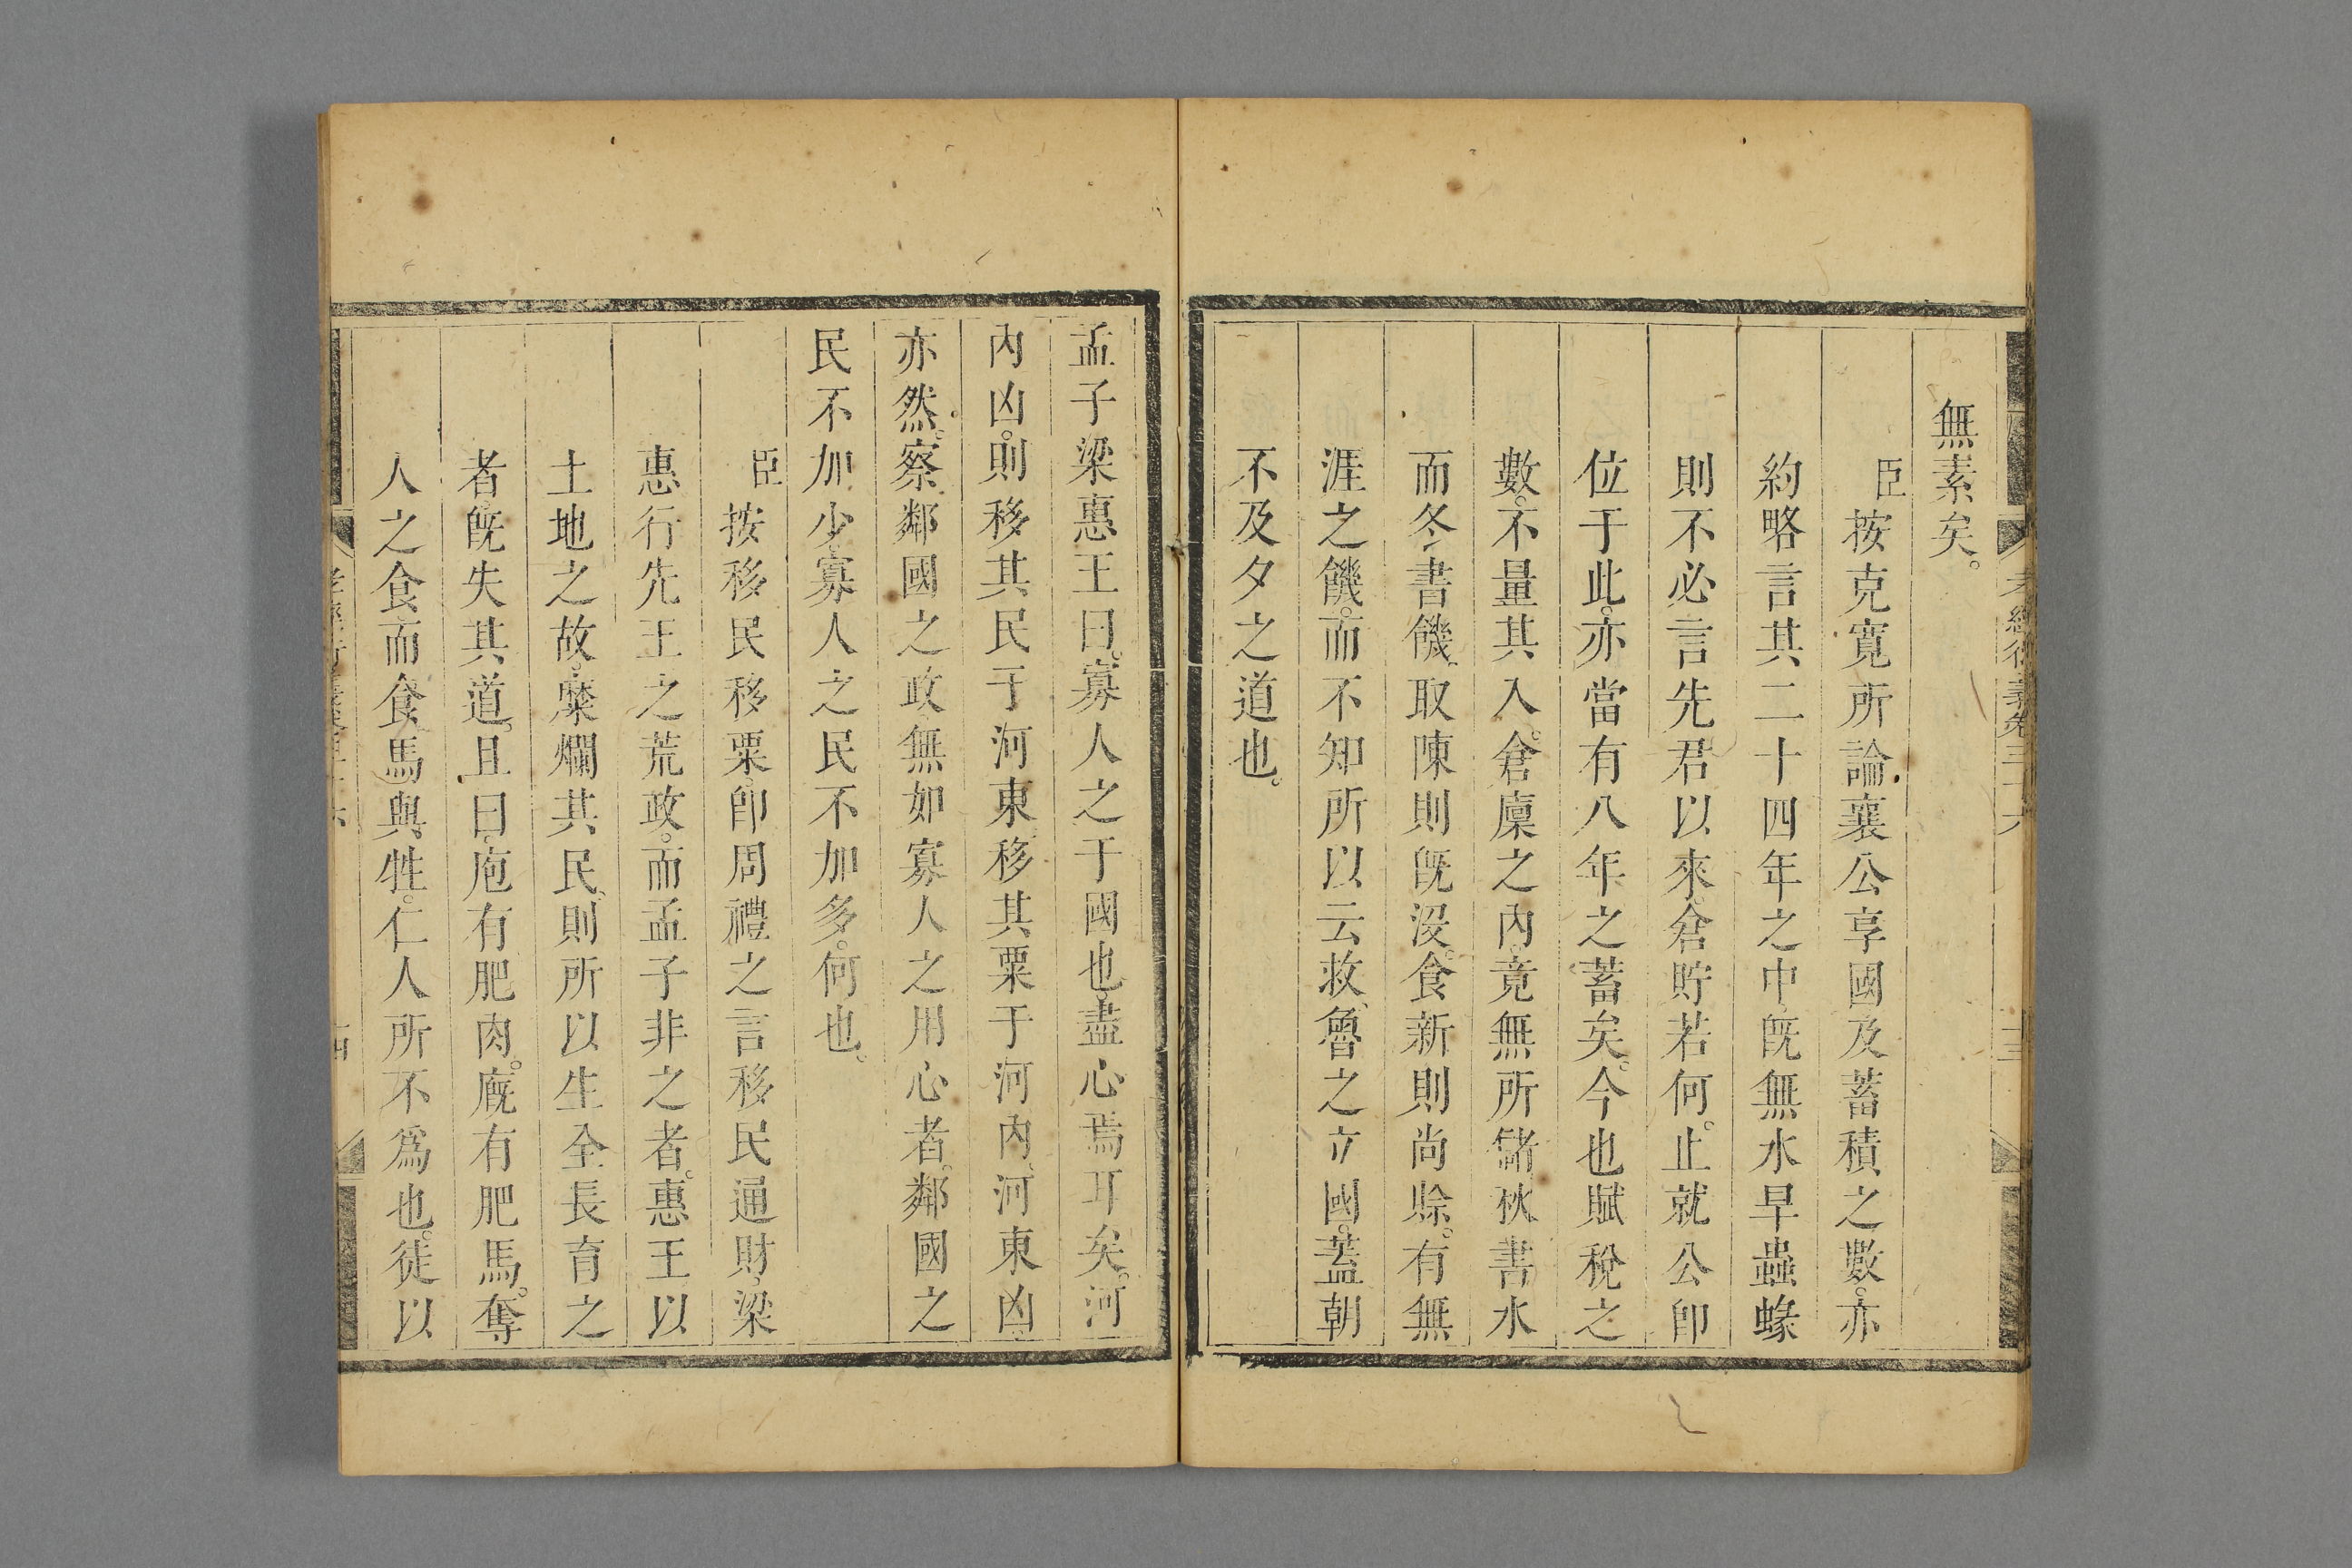 孝經衍義卷三十六
十三
無素矣。
臣按克寬所論襄公享國及蓄積之數。亦
約略言其二十四年之中旣無水旱蟲蝝
則不必言先君以來。倉貯若何。止就公卽
位于此。亦當有八年之蓄矣。今也賦稅之
數。不量其入。倉廩之內。竟無所儲。秋書水
而冬書饑。取陳則旣沒。食新則尚賒。有無
涯之饑。而不知所以云救。魯之立國。蓋朝
不及夕之道也。
孟子梁惠王曰。寡人之于國也。盡心焉耳矣。河
內凶。則移其民于河東。移其粟于河內。河東凶。
亦然。察鄰國之政。無如寡人之用心者。鄰國之
民不加少。寡人之民不加多。何也。
臣按移民移粟。卽周禮之言移民通財。梁
惠行先王之荒政。而孟子非之者。惠王以
土地之故。糜爛其民。則所以生全長育之
者旣失其道。且曰。庖有肥肉。廐有肥馬。奪
人之食而食馬與牲。仁人所不爲也。徒以
十四